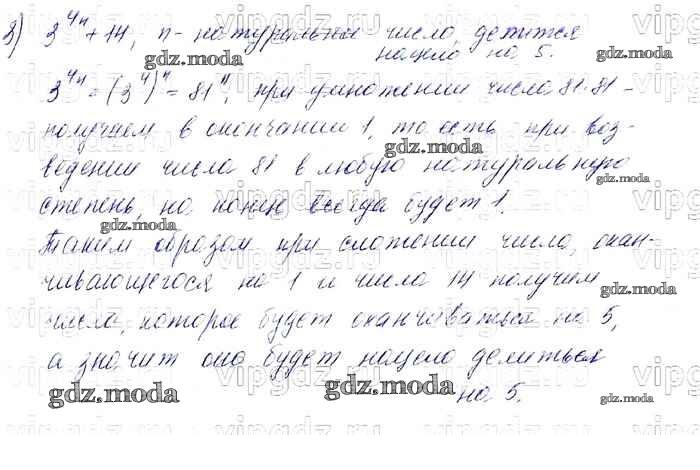 3) 3^{4n} + 14, n - натуральное число, делится
нацело на 5.
3^{4n} = (3^4)^n = 81^n, при умножении числа 81·81 -
получаем в окончании 1, то есть при воз-
ведении числа 81 в любую натуральную
степень, на конце всегда будет 1.
Таким образом при сложении числа, окан-
чивающегося на 1 и числа 14 получим
число, которое будет оканчиваться на 5,
а значит оно будет нацело делиться
на 5.
gdz.moda
vipgdz.ru